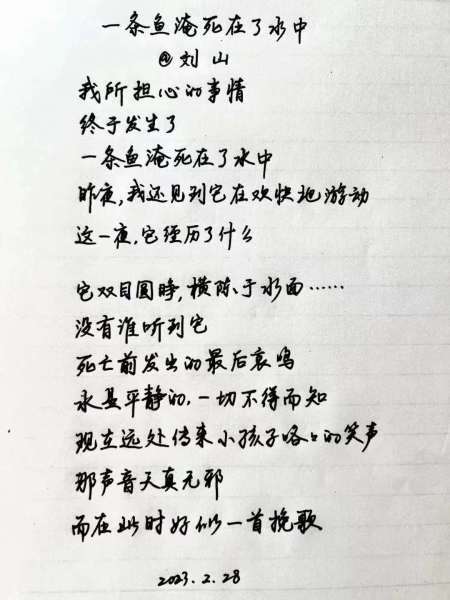 一条鱼淹死在了水中
@刘山
我所担心的事情
终于发生了
一条鱼淹死在了水中
昨夜,我还见到它在欢快地游动
这一夜,它经历了什么
它双目圆睁,横陈于水面……
没有谁听到它
死亡前发出的最后哀鸣
水是平静的,一切不得而知
现在远处传来小孩子咯咯的笑声
那声音天真无邪
而在此时好似一首挽歌
2023.2.28